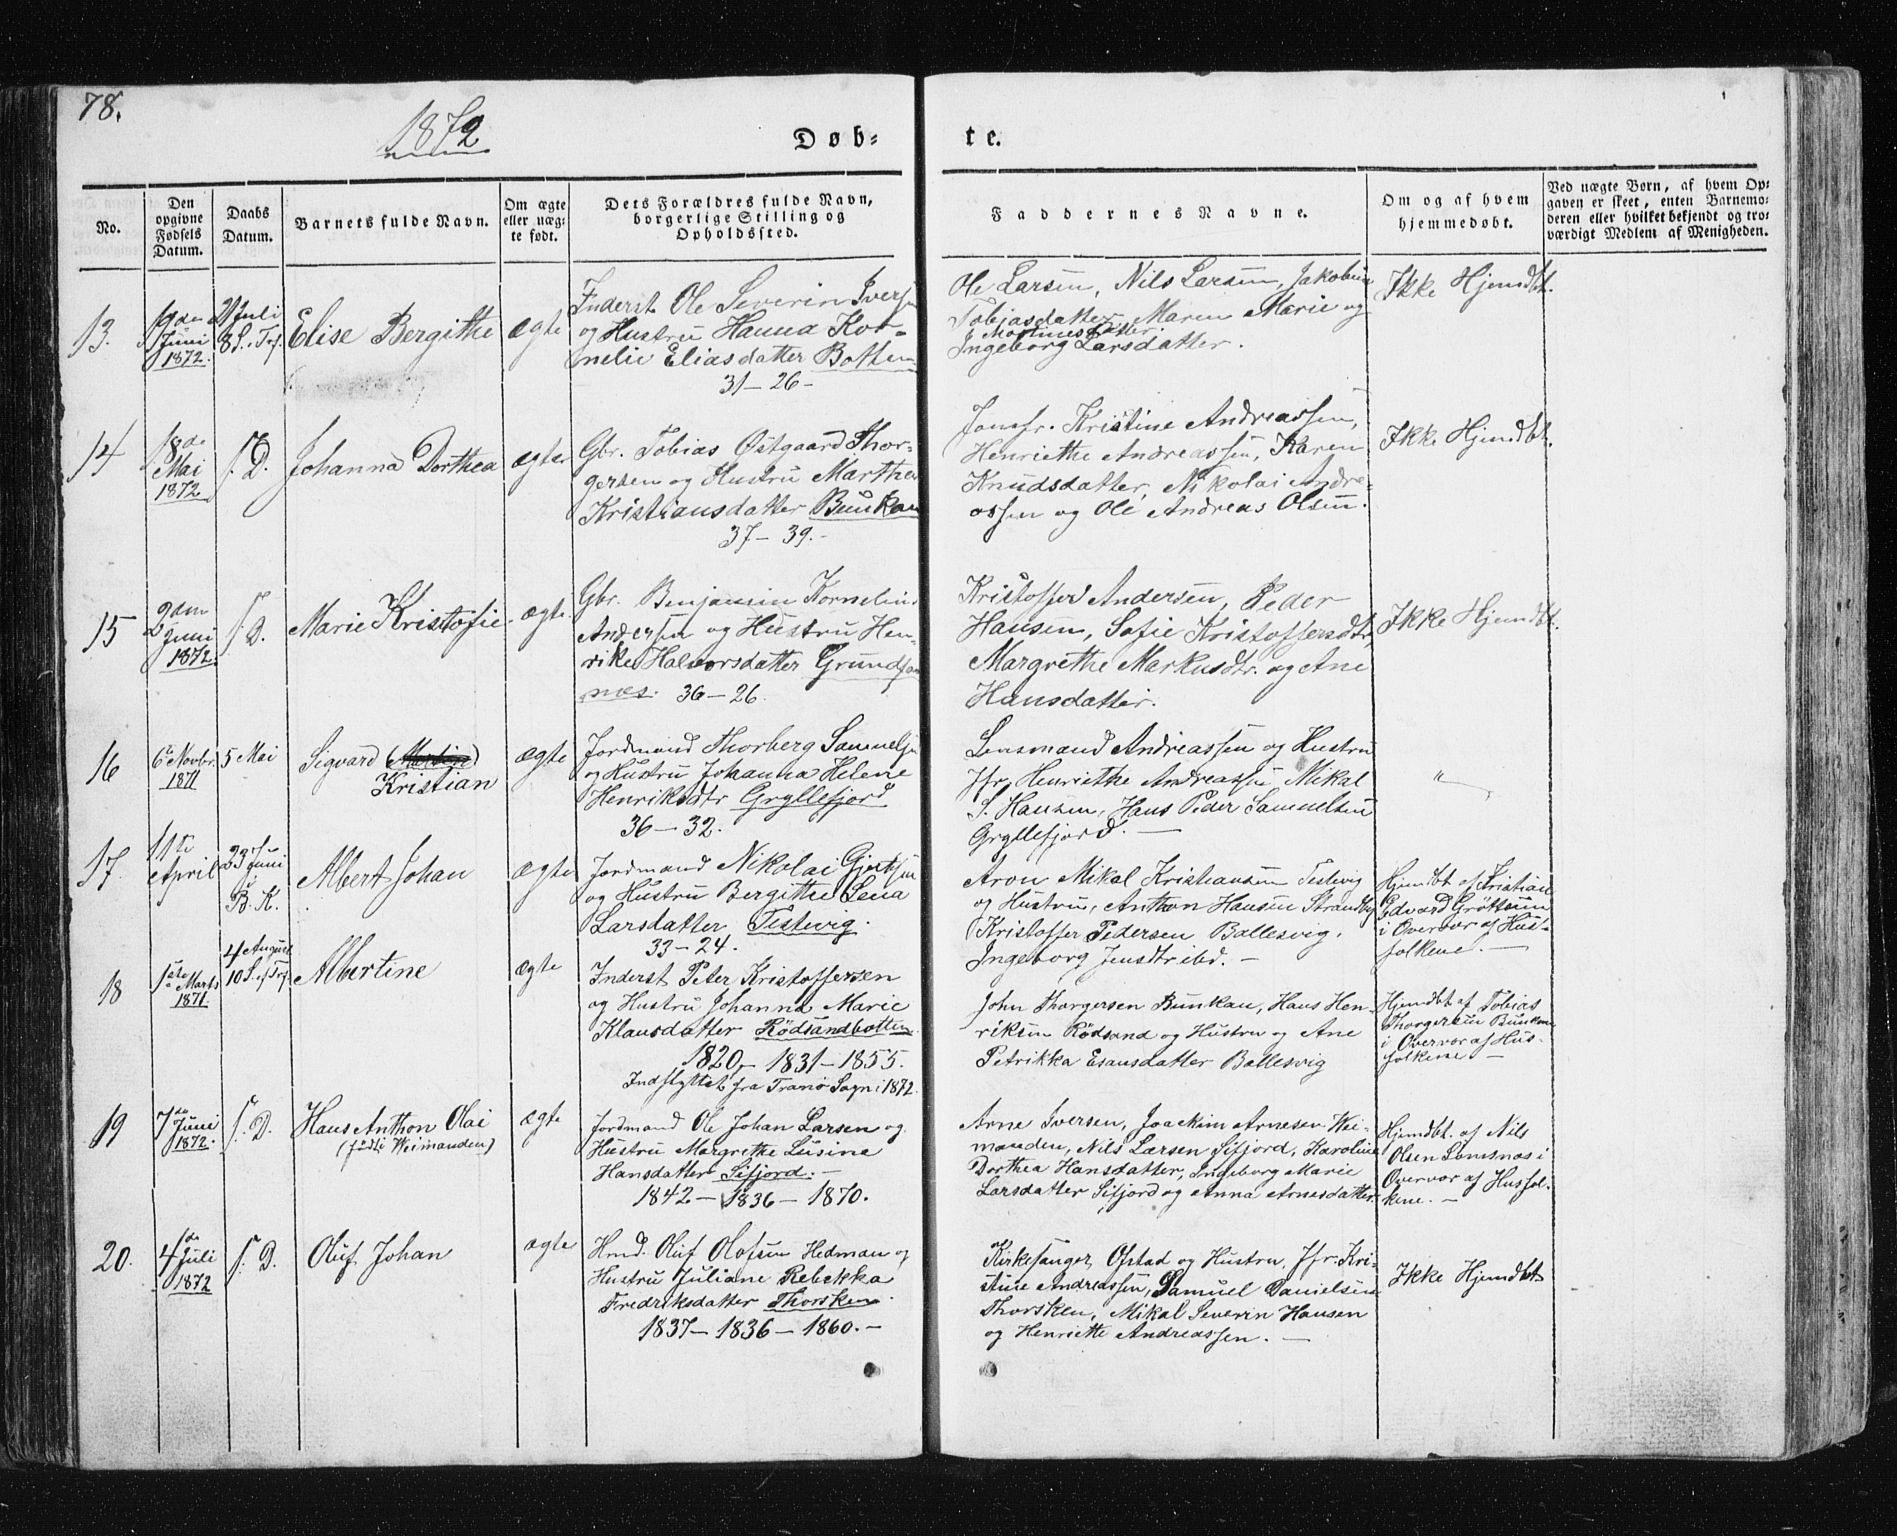 78.
1872
Døb-
te.
No.
Den
opgivne
Fødsels
Datum.
Daabs
Datum.
Barnets fulde Navn.
Om ægte
eller uæg-
te født.
Dets Forældres fulde Navn,
borgerlige Stilling og
Opholdssted.
Faddernes Navne.
Om og af hvem
hjemmedøbt.
Ved uægte Børn, af hvem Op-
gaven er skeet, enten Barnemo-
deren eller hvilket bekjendt og tro-
værdigt Medlem af Menigheden.
13.
Juni
1872.
21 Juli
8 S. Trf.
Elise Bergithe
ægte
Inderst Ole Severin Iversen
og Hustru Hanna Kor-
nelie Eliasdatter Botten
31-26-
Ole Larsen, Nils Larsen, Jakobine
Tobiasdatter, Maren Marie
Mortinesdatter og
Ingeborg Larsdatter.
Ikke Hjemdbt.
14
18de
Mai
1872
s. D.
Johanna Dorthea
ægte
Gbr. Tobias Østgaard Thor-
gersen og Hustru Marthe
Kristiansdatter Bunkan
37-39.-
Jomfr. Kristine Andreassen,
Henriethe Andreassen, Karen
Knudsdatter, Nikolai Andre-
assen og Ole Andreas Olsen.
Ikke Hjemdbt.
15
2den
Juni
1872.
s. D.
Marie Kristofie
ægte
Gbr. Benjamin Kornelius
Andersen og Hustru Hen-
rike Halvorsdatter Grundfar-
nes. 36-26.
Kristoffer Andersen, Peder
Hansen, Sofie Kristoffersdtr,
Margrethe Markusdtr. og Ane
Hansdatter.
Ikke Hjemdbt.
16
6te Novbr.
1871
5 Mai
Sigvard (Martin)
Kristian
ægte
Jordmand Thorberg Samuelsen
og Hustru Johanna Helene
Henriksdtr Gryllefjord
36-32.
Lensmand Andreassen og Hustru
Jfr. Henriethe Andreassen Mikal
S. Hansen, Hans Peder Samuelsen
Gryllefjord. -
"
17.
11te
April
23 Juni
i
B. K.
Albert Johan
ægte
Jordmand Nikolai Gjertsen
og Hustru Bergitthe Lena
Larsdatter Teistevig.
33-24.
Aron Mikal Kristiansen Teistevig
og Hustru, Anthon Hansen Strandby
Kristoffer Pedersen Ballesvig,
Ingeborg Jensdtr ibd. -
Hjemdbt af Kristian
Edvard Grøttsum
i Overvær af Hus-
folkene. -
18
1ste
Marts
1871.
4 August
10 S. ef. Trf.
Albertine
ægte
Inderst Peter Kristoffersen
og Hustru Johanna Marie
Klausdatter Rödsandbotten
1820,- 1831-1855.
Indflyttet fra Tranø Sogn i 1872.
John Thorgersen Bunkan, Hans Hen-
riksen Rödsand og Hustru og Ane
Petrikka Esausdatter Ballesvig
Hjemdbt af Tobias
Thorgersen Bunkan
i Overvær af Hus-
folkene -
19
7de
Juni
1872.
s. D.
Hans Anthon Olai
(födt i Weimanden)
ægte
Jordmand Ole Johan Larsen og
Hustru Margrethe Luisine
Hansdatter Sifjord. -
1842-1836-1870.
Arne Iversen, Joackim Arnesen Wei-
manden, Nils Larsen Sifjord, Karoline
Dorthea Hansdatter, Ingeborg Marie
Larsdatter Sifjord og Anna Arnesdatter
Hjemdbt. af Nils
Olsen Lomsnes i
Overvær af Husfol-
kene. -
20.
4de
Juli
1872
s. D.
Oluf Johan
ægte
Hmd. Oluf Olofsen Hedman og
Hustru Juliane Rebekka
Fredriksdatter Thorsken.
1837-1836-1860.-
Kirkesanger Ofstad og Hustru, Jfr. Kri-
stine Andreassen, Samuel Danielsen
Thorsken, Mikal Severin Hansen
og Henriette Andreassen. -
Ikke Hjemdbt